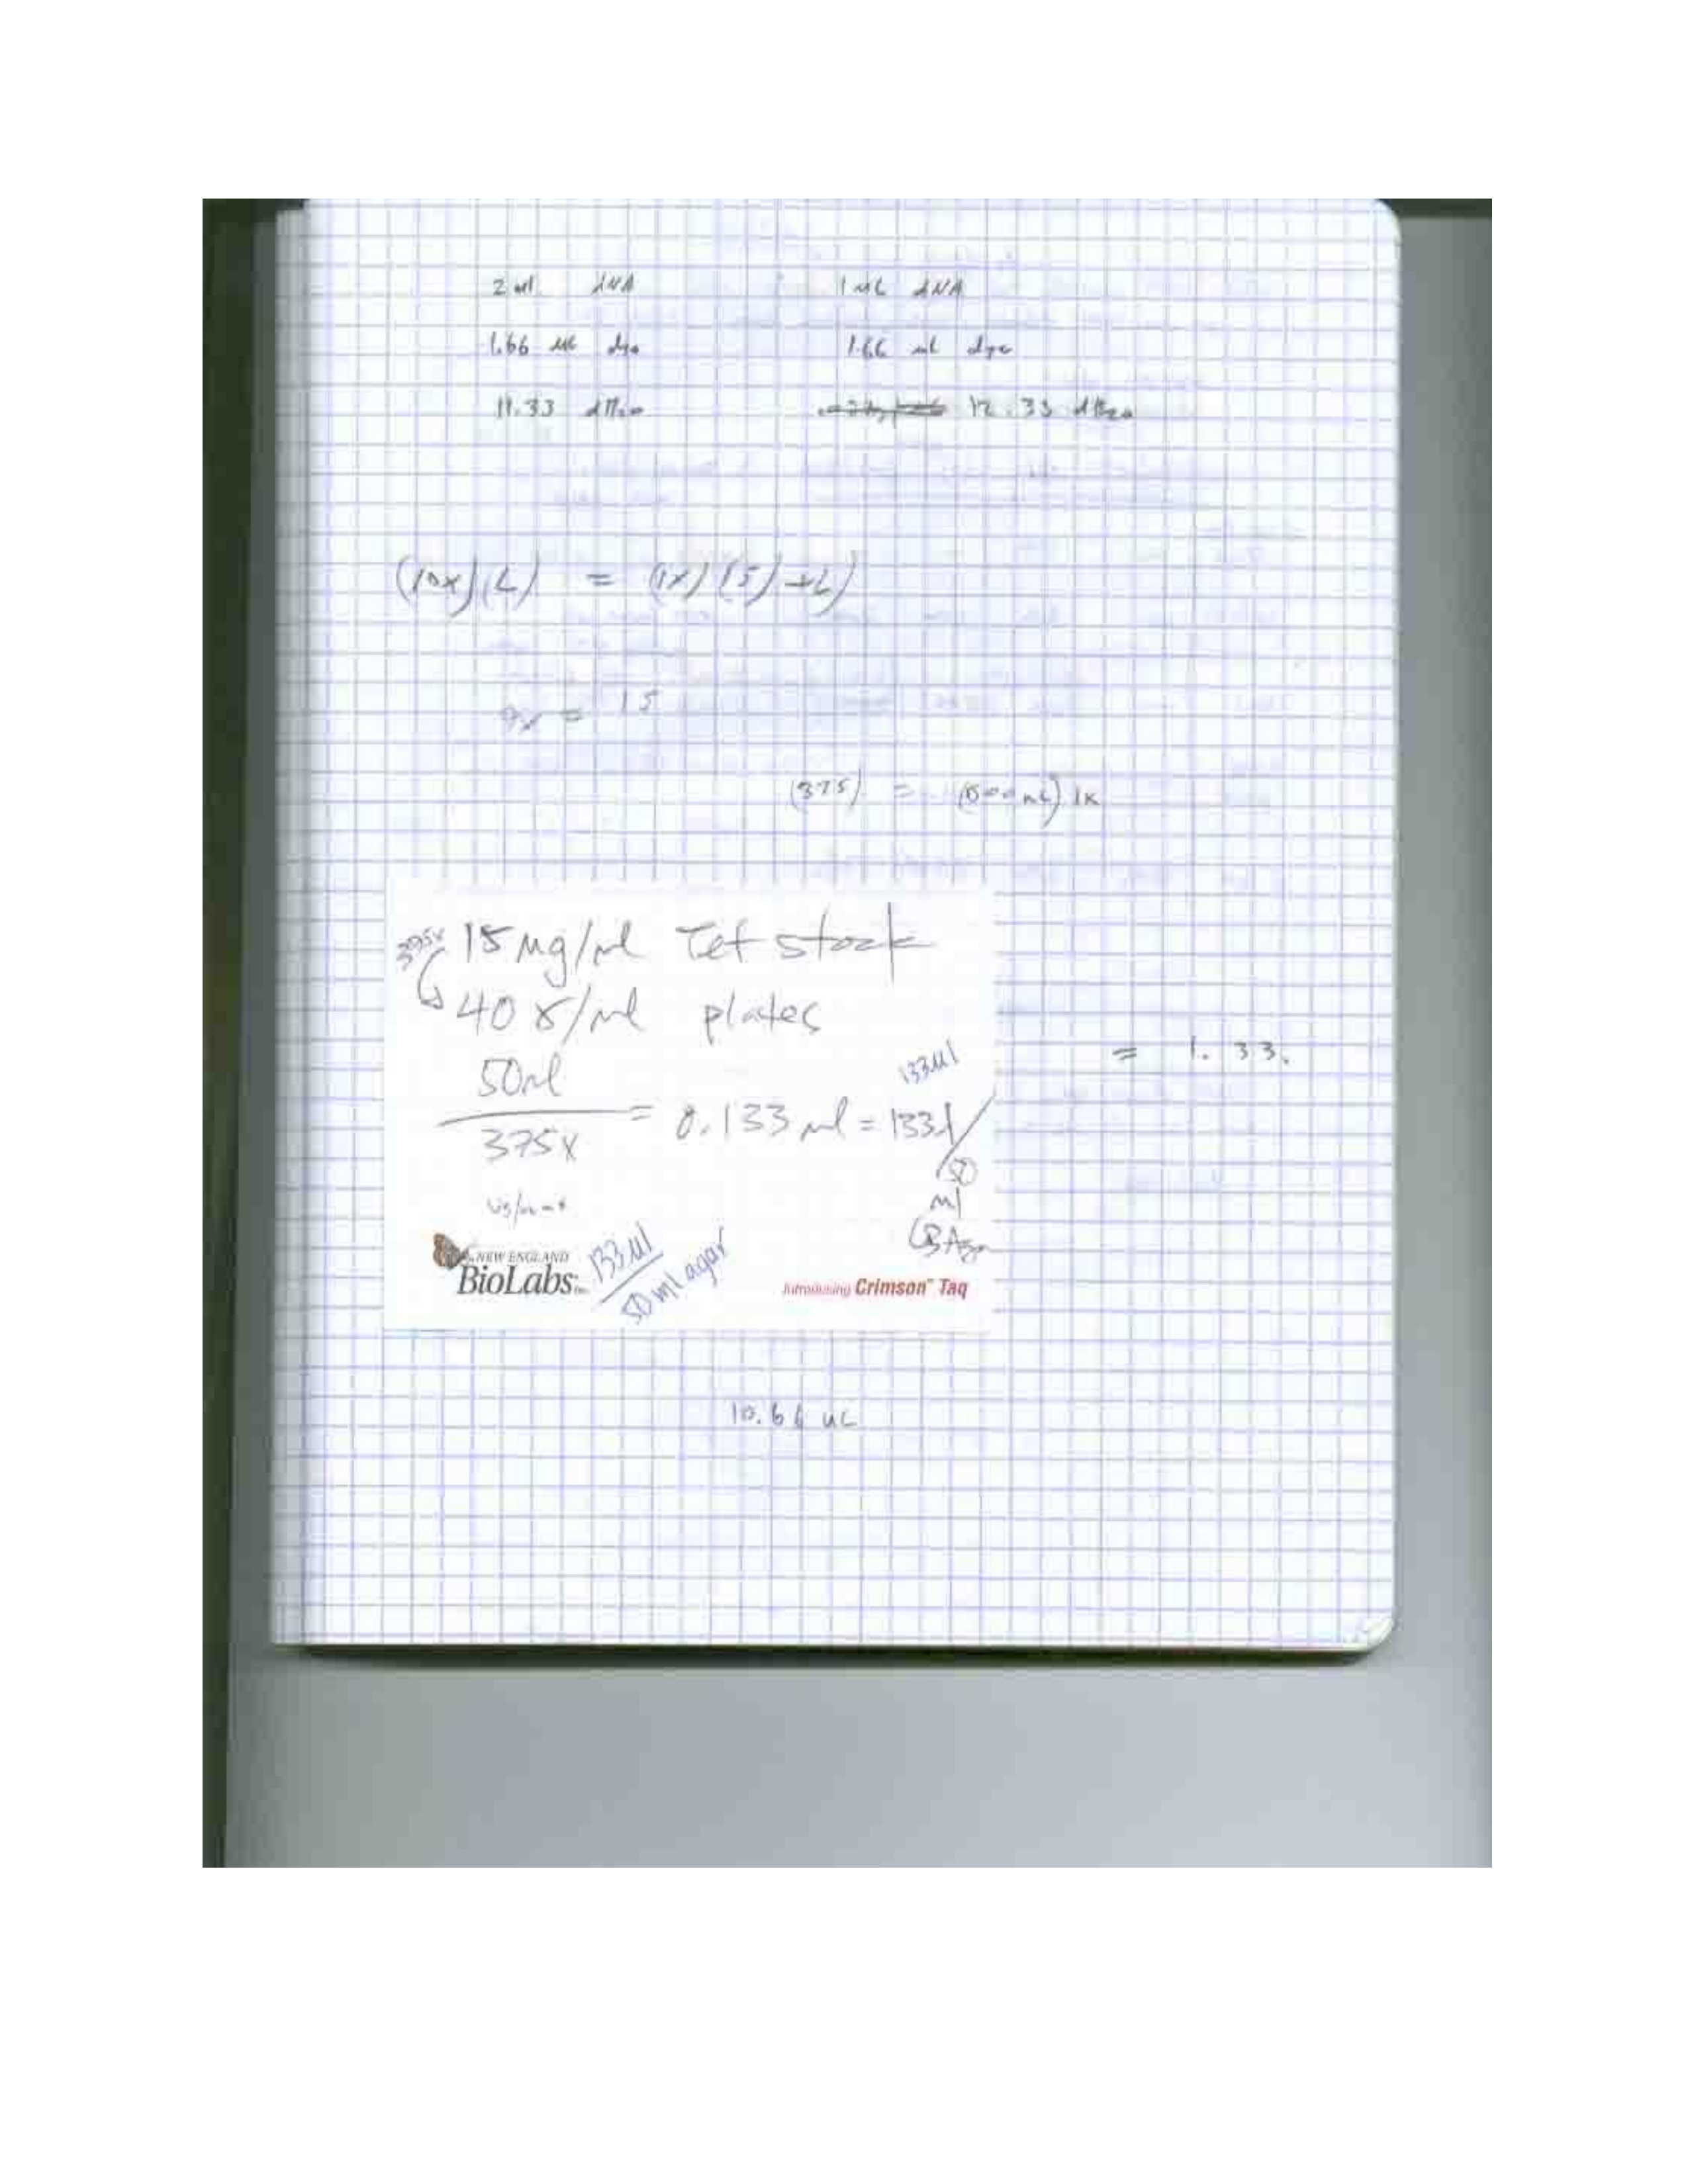 2 ul DNA 1 uL DNA
1.66 uL dye 1.66 uL dye
11.33 dH20 12.33 dH20
(10x)(L) = (1x)(15)+L)
9x = 15
(375) = (500 mL) 1x
375x 15 mg/ml Tet stock
40 γ/ml plates
50ml
375x
= 0.133 ml = 133λ/
133ul
50
ml
LB Agar
= 1.33.
NEW ENGLAND
BioLabs Inc.
133 ul
50 ml agar
Introducing Crimson™ Taq
10.66 uL